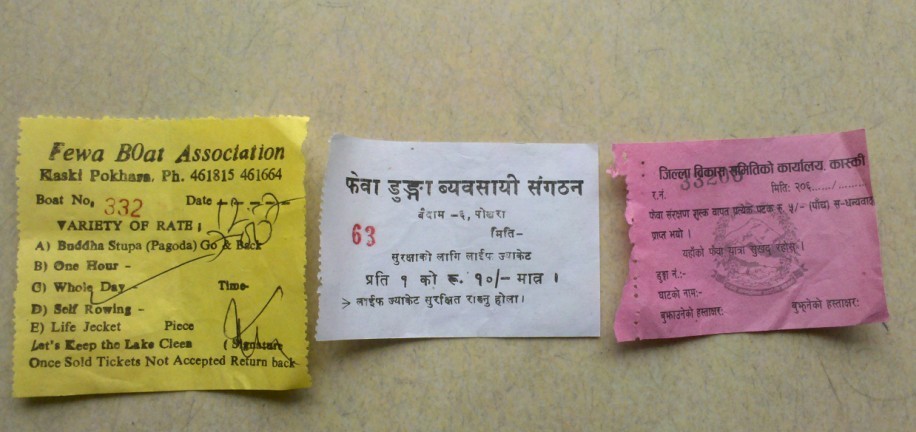 Fewa BOat Association
Kaski Pokhara. Ph. 461815 461664
Boat No. 332 Date
VARIETY OF RATE;
A) Buddha Stupa (Pagoda) Go & Back
B) One Hour -
C) Whole Day - Time-
D) Self Rowing -
E) Life Jecket Piece
Let's Keep the Lake Cleen ( Signature
Once Sold Tickets Not Accepted Return back
फेवा डुङ्गा ब्यवसायी संगठन
बैदाम -६, पोखरा
63 मिति-
सुरक्षाको लागि लाईफ ज्याकेट
प्रति १ को रू. १०/- मात्र ।
लाईफ ज्याकेट सुरक्षित राख्नु होला।
जिल्ला विकास समितिको कार्यालय, कास्की
र.नं. मिति: २०६....../.........
फेवा संरक्षण शुल्क बापत प्रत्येक पटक रु. ५/- (पाँच) स-धन्यवाद
प्राप्त भयो ।
यहाँको फेवा यात्रा सुखद रहोस् ।
डुङ्गा नं.:-
घाटको नाम:-
बुझाउनेको हस्ताक्षर: बुझ्नेको हस्ताक्षर: